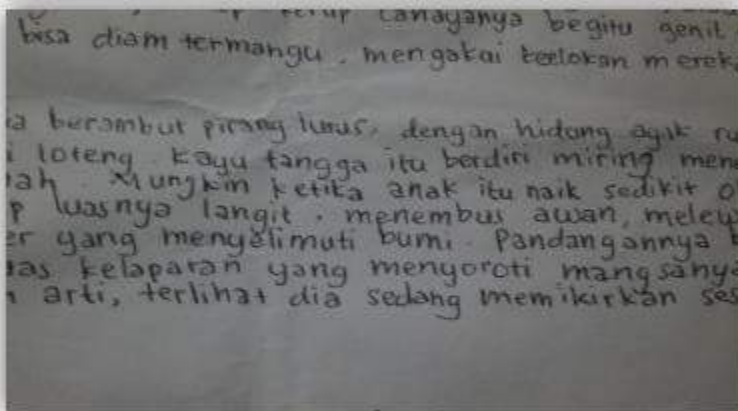 kerup cahayanya begitu genit
bisa diam termangu, mengakai
berambut pirang lurus, dengan hidung agak
loteng. kayu tangga itu berdiri miring
Mungkin ketika anak itu naik sedikit
luasnya langit. menembus awan,
yang menyelimuti bumi. Pandangannya
kelaparan yang menyoroti mangsanya
arti, terlihat dia sedang memikirkan